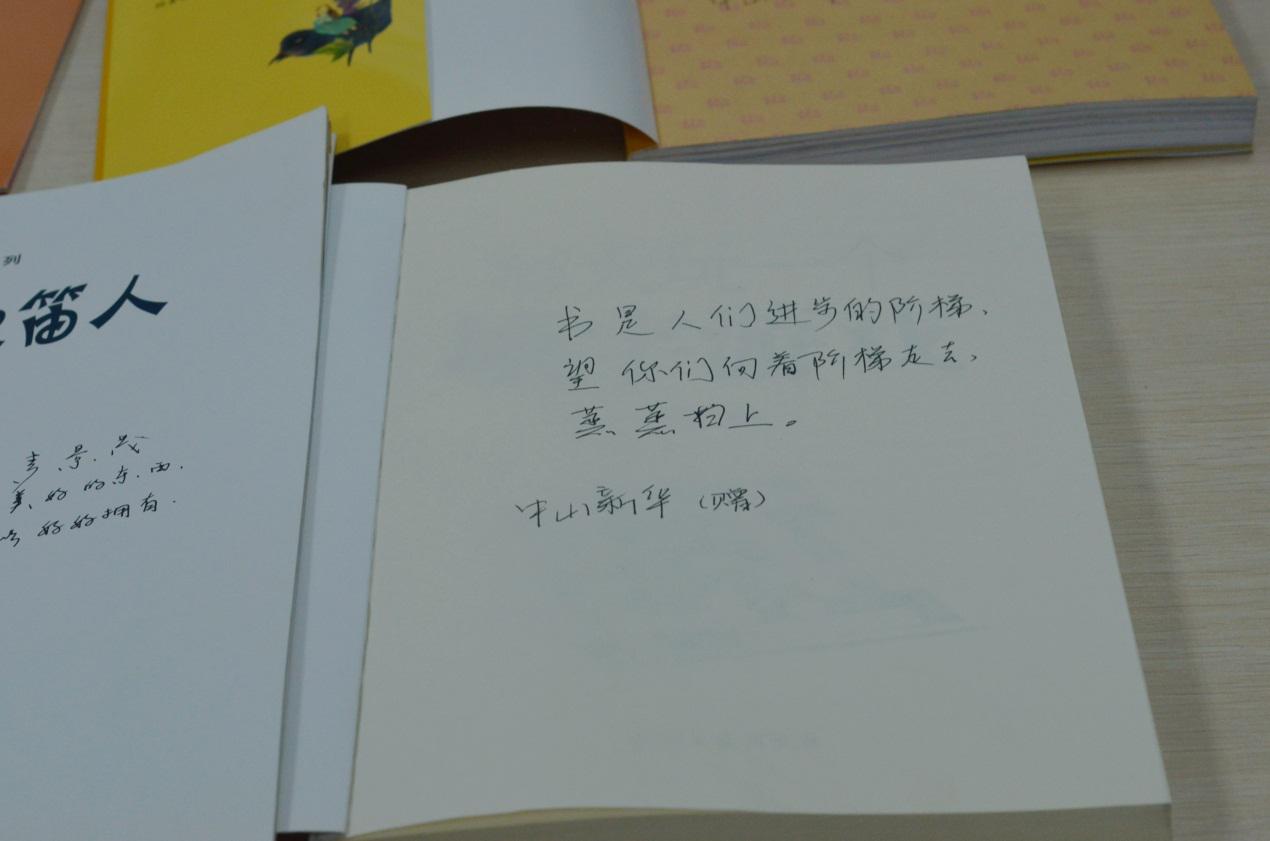 列
笛人
景
美好的东西.
好好拥有.
书是人们进步的阶梯、
望你们向着阶梯走去、
蒸蒸向上。
中山新华（贝曾）